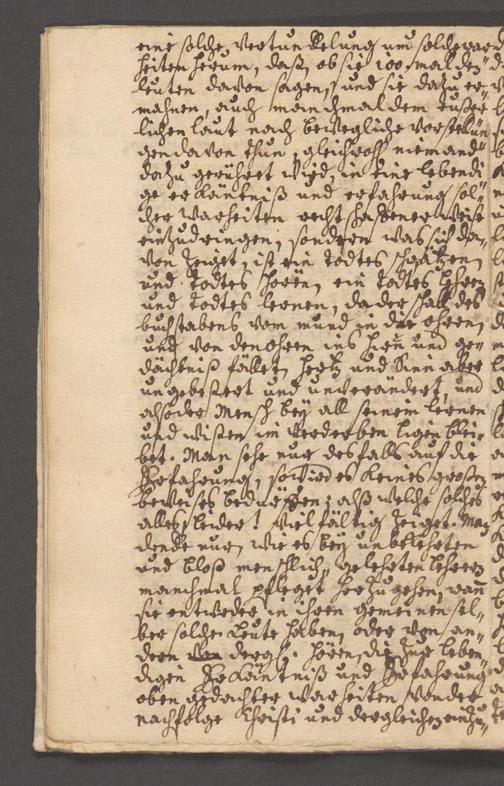 eine solche Vertunckelung um solche war
heiten herum, daß, ob sie 100 mal den
leuten davon sagen, und sie dazu er-
mahnen, auch manchmal dem äußer-
lichen laut nach bewegliche vorstellun
gen davon thun, gleichwohl niemand
dazu gerühret wird, in eine lebendi
ge erkäntniß und erfahrung sol-
cher warheiten rechtschaffener weise
einzudringen, sondern was sich da-
von zeiget, ist ein todtes schwätzen,
und todtes hören, ein todtes lehren
und todtes lernen, da der schall des
buchstabens vom mund in die ohren,
und von den ohren ins hirn und ge-
dächtniß fället, hertz und Sinn aber
ungebeßert und unverändert, und
also der Mensch bey all seinem lernen
und wißen im verderben ligen blei-
bet. Man sehe nur desfalls auf die
Erfahrung, so wird es keines großen
beweises bedürffen; alß welche solches
alles leider! vielfältig zeiget. Man
dencke nur, wie es bey unbekehrten
und bloß menschlich-gelehrten lehrern
manchmal pfleget herzugehen, wan
sie entweder in ihren gemeinen sel-
ber solche leute haben, oder von an-
dern dergl. hören, die zur leben-
digen Erkäntniß und Erfahrung
oben gedachter warheiten von der
nachfolge Christi und dergleichen